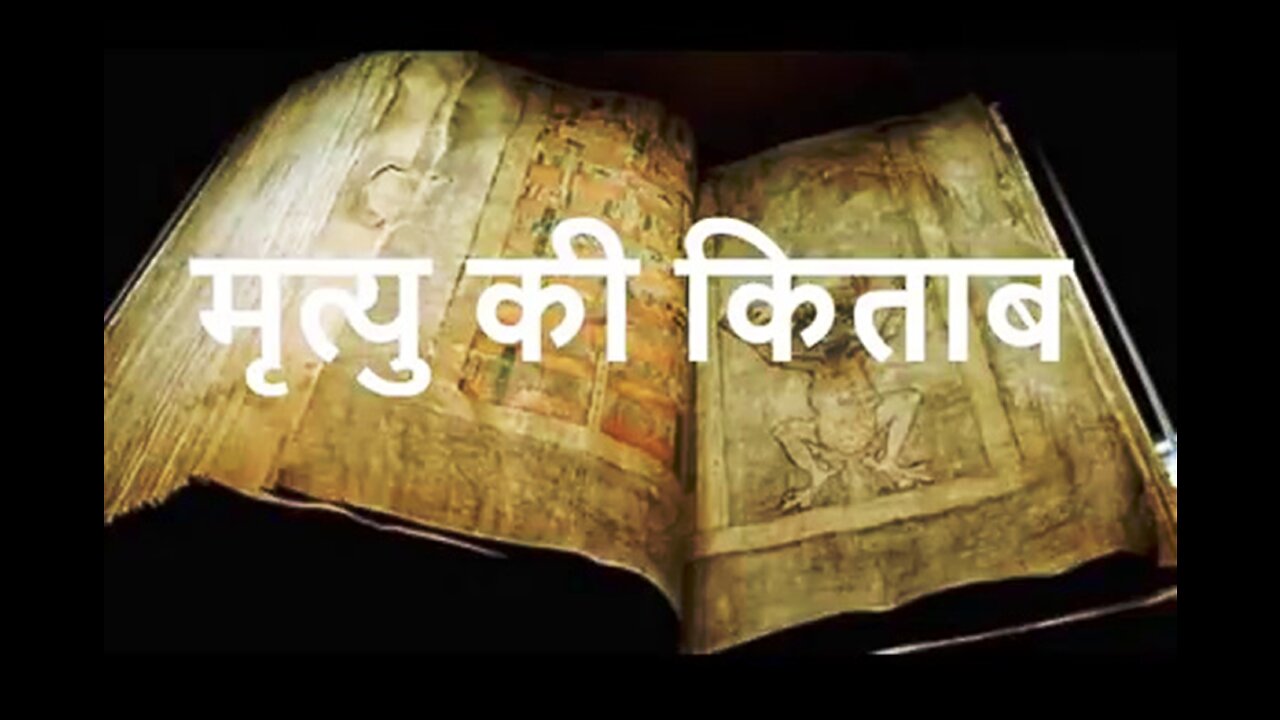 मृत्यु की किताब